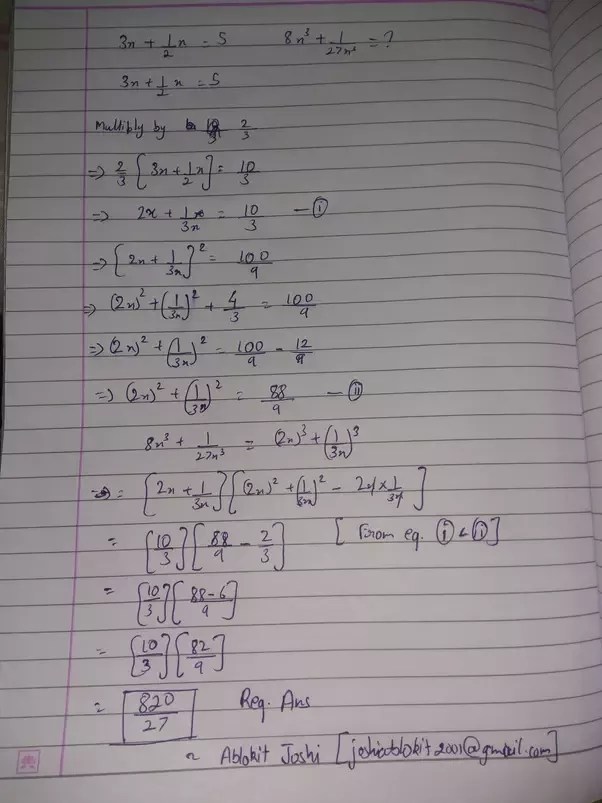 3x + 1/2 x = 5    8x³ + 1/27x³ = ?
3x + 1/2 x = 5
Multiply by 2/3
⇒ 2/3 [3x + 1/2 x] = 10/3
⇒ 2x + 1/3x = 10/3 — (i)
⇒ [2x + 1/3x]² = 100/9
⇒ (2x)² + (1/3x)² + 4/3 = 100/9
⇒ (2x)² + (1/3x)² = 100/9 - 12/9
⇒ (2x)² + (1/3x)² = 88/9 — (ii)
8x³ + 1/27x³ = (2x)³ + (1/3x)³
⇒ = [2x + 1/3x] [(2x)² + (1/3x)² - 2x × 1/3x]
= [10/3] [88/9 - 2/3]    [From eq. (i) & (ii)]
= [10/3] [88-6/9]
= [10/3] [82/9]
= 820/27    Req. Ans
~ Ablokit Joshi